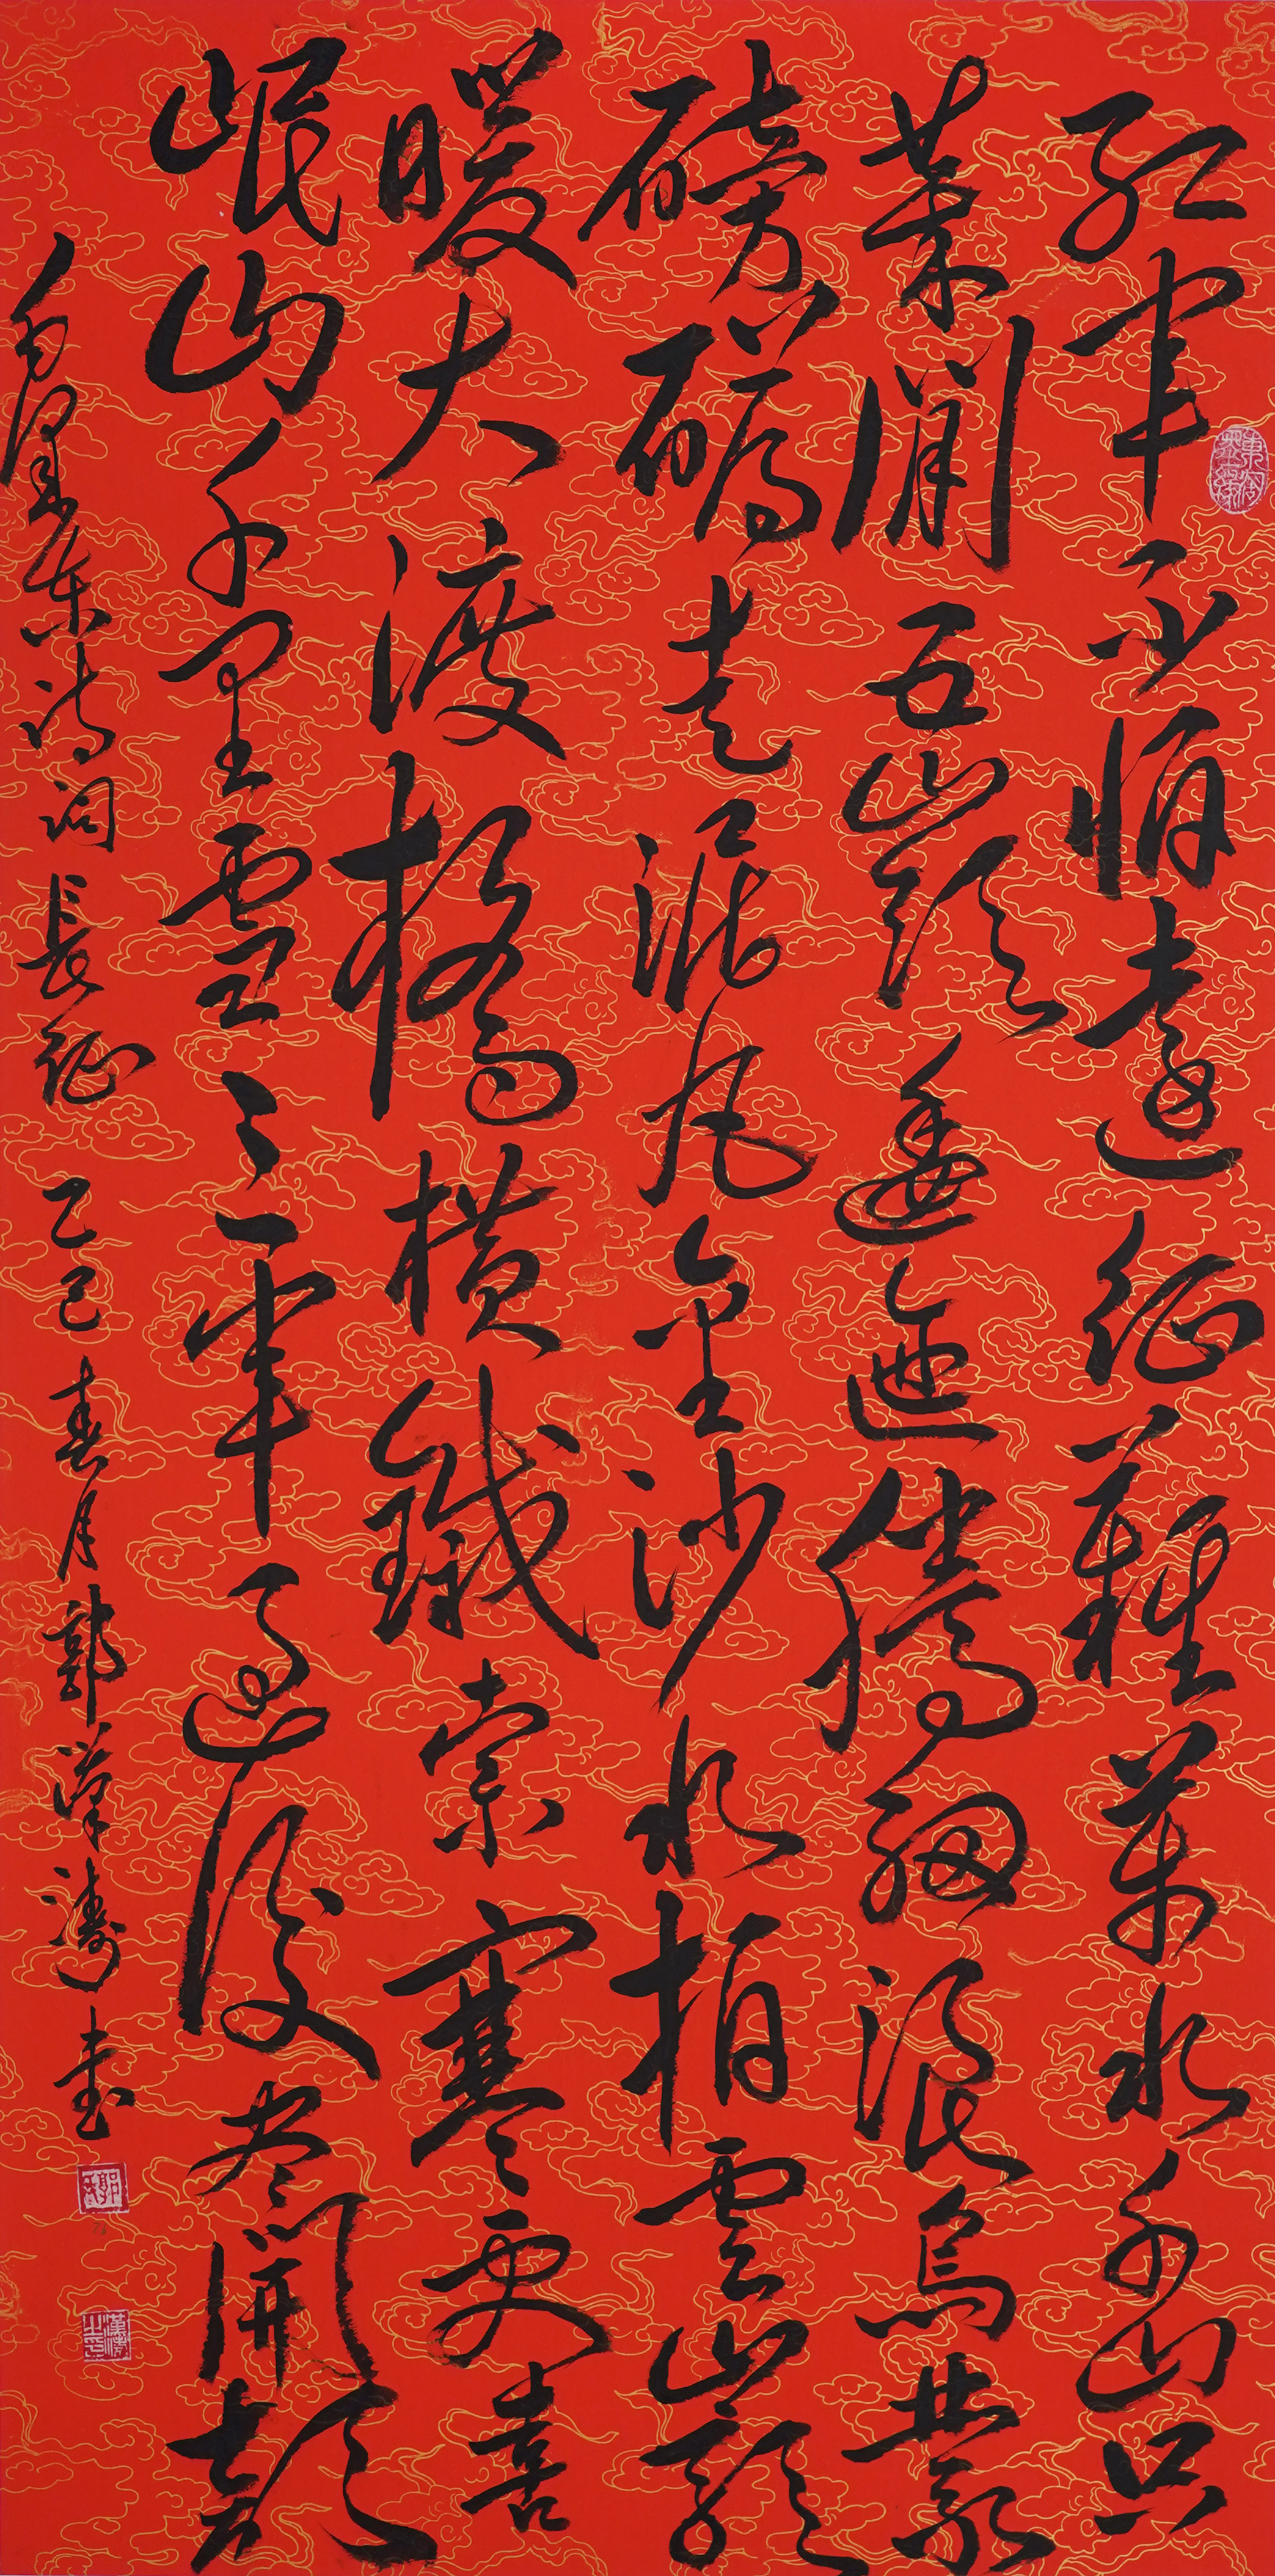 紅軍不怕遠征難萬水千山只
等閒五嶺逶迤騰細浪烏蒙
磅礴走泥丸金沙水拍雲崖
暖大渡橋橫鐵索寒更喜
岷山千里雪三軍過後尽開顏
毛澤東詩詞長征乙巳春月郭漢濤書
漢濤之印